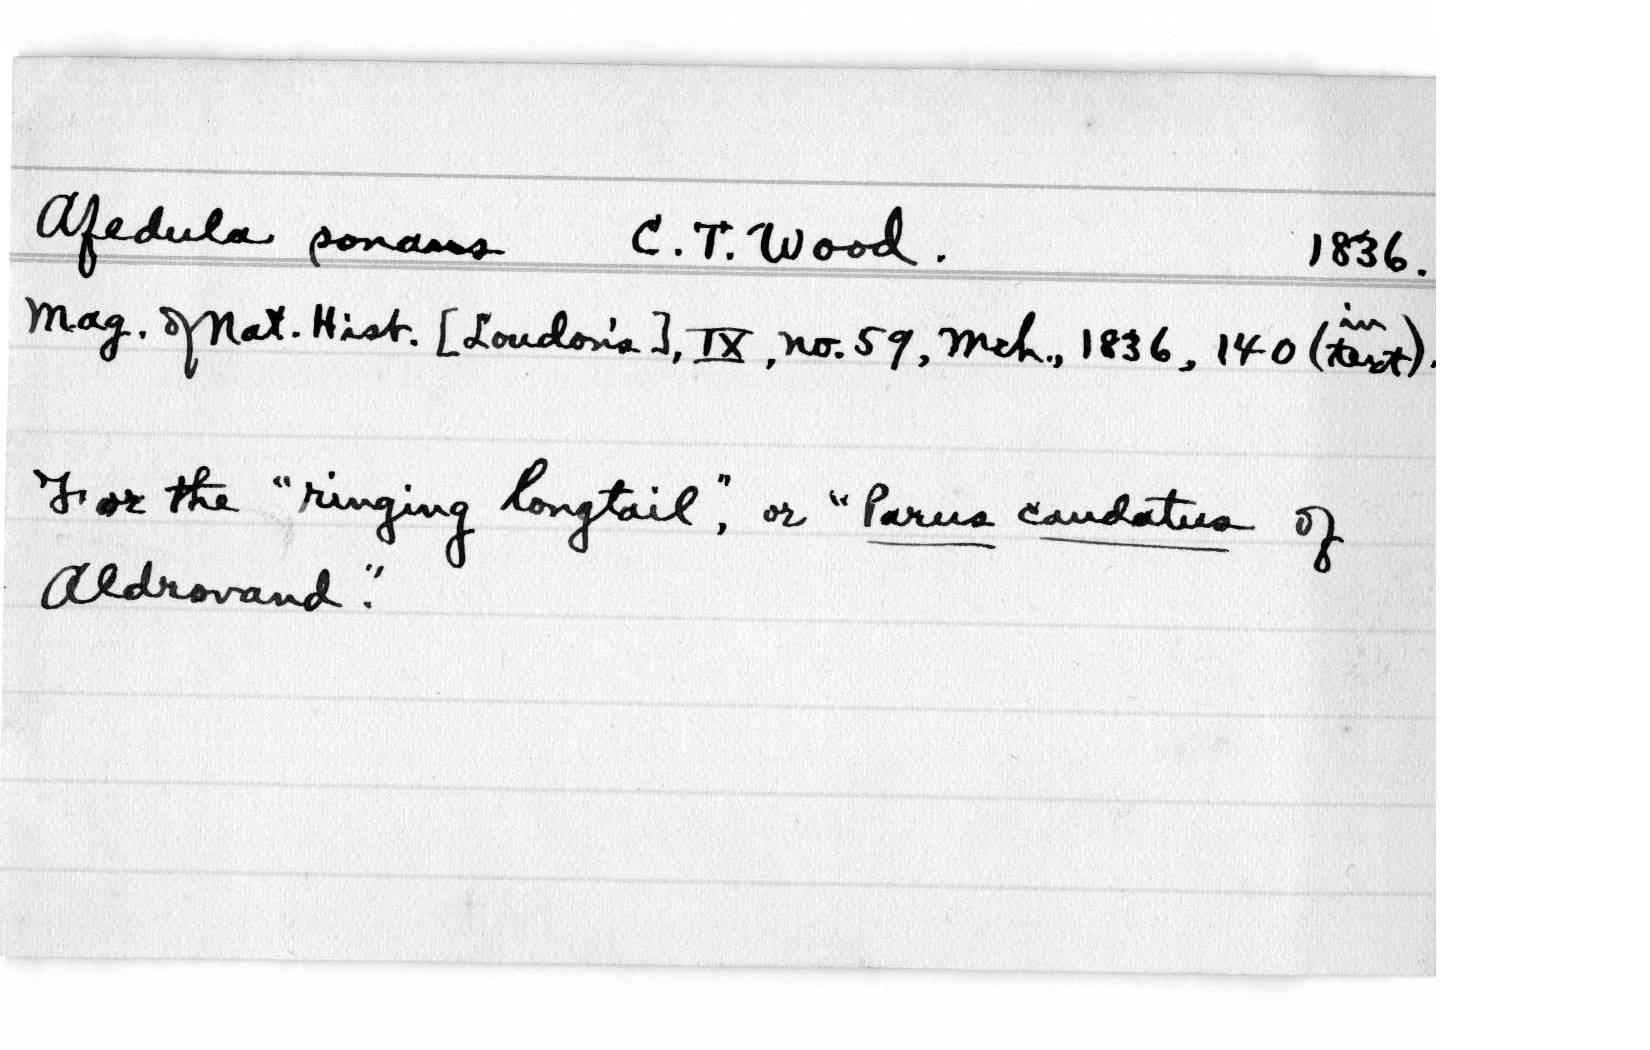 Afedula sonans C. T. Wood. 1836.
Mag. of Nat. Hist. [Loudon's], IX, no. 59, Mch., 1836, 140 (in text).
For the "ringing longtail", or "Parus caudatus of
Aldrovand".